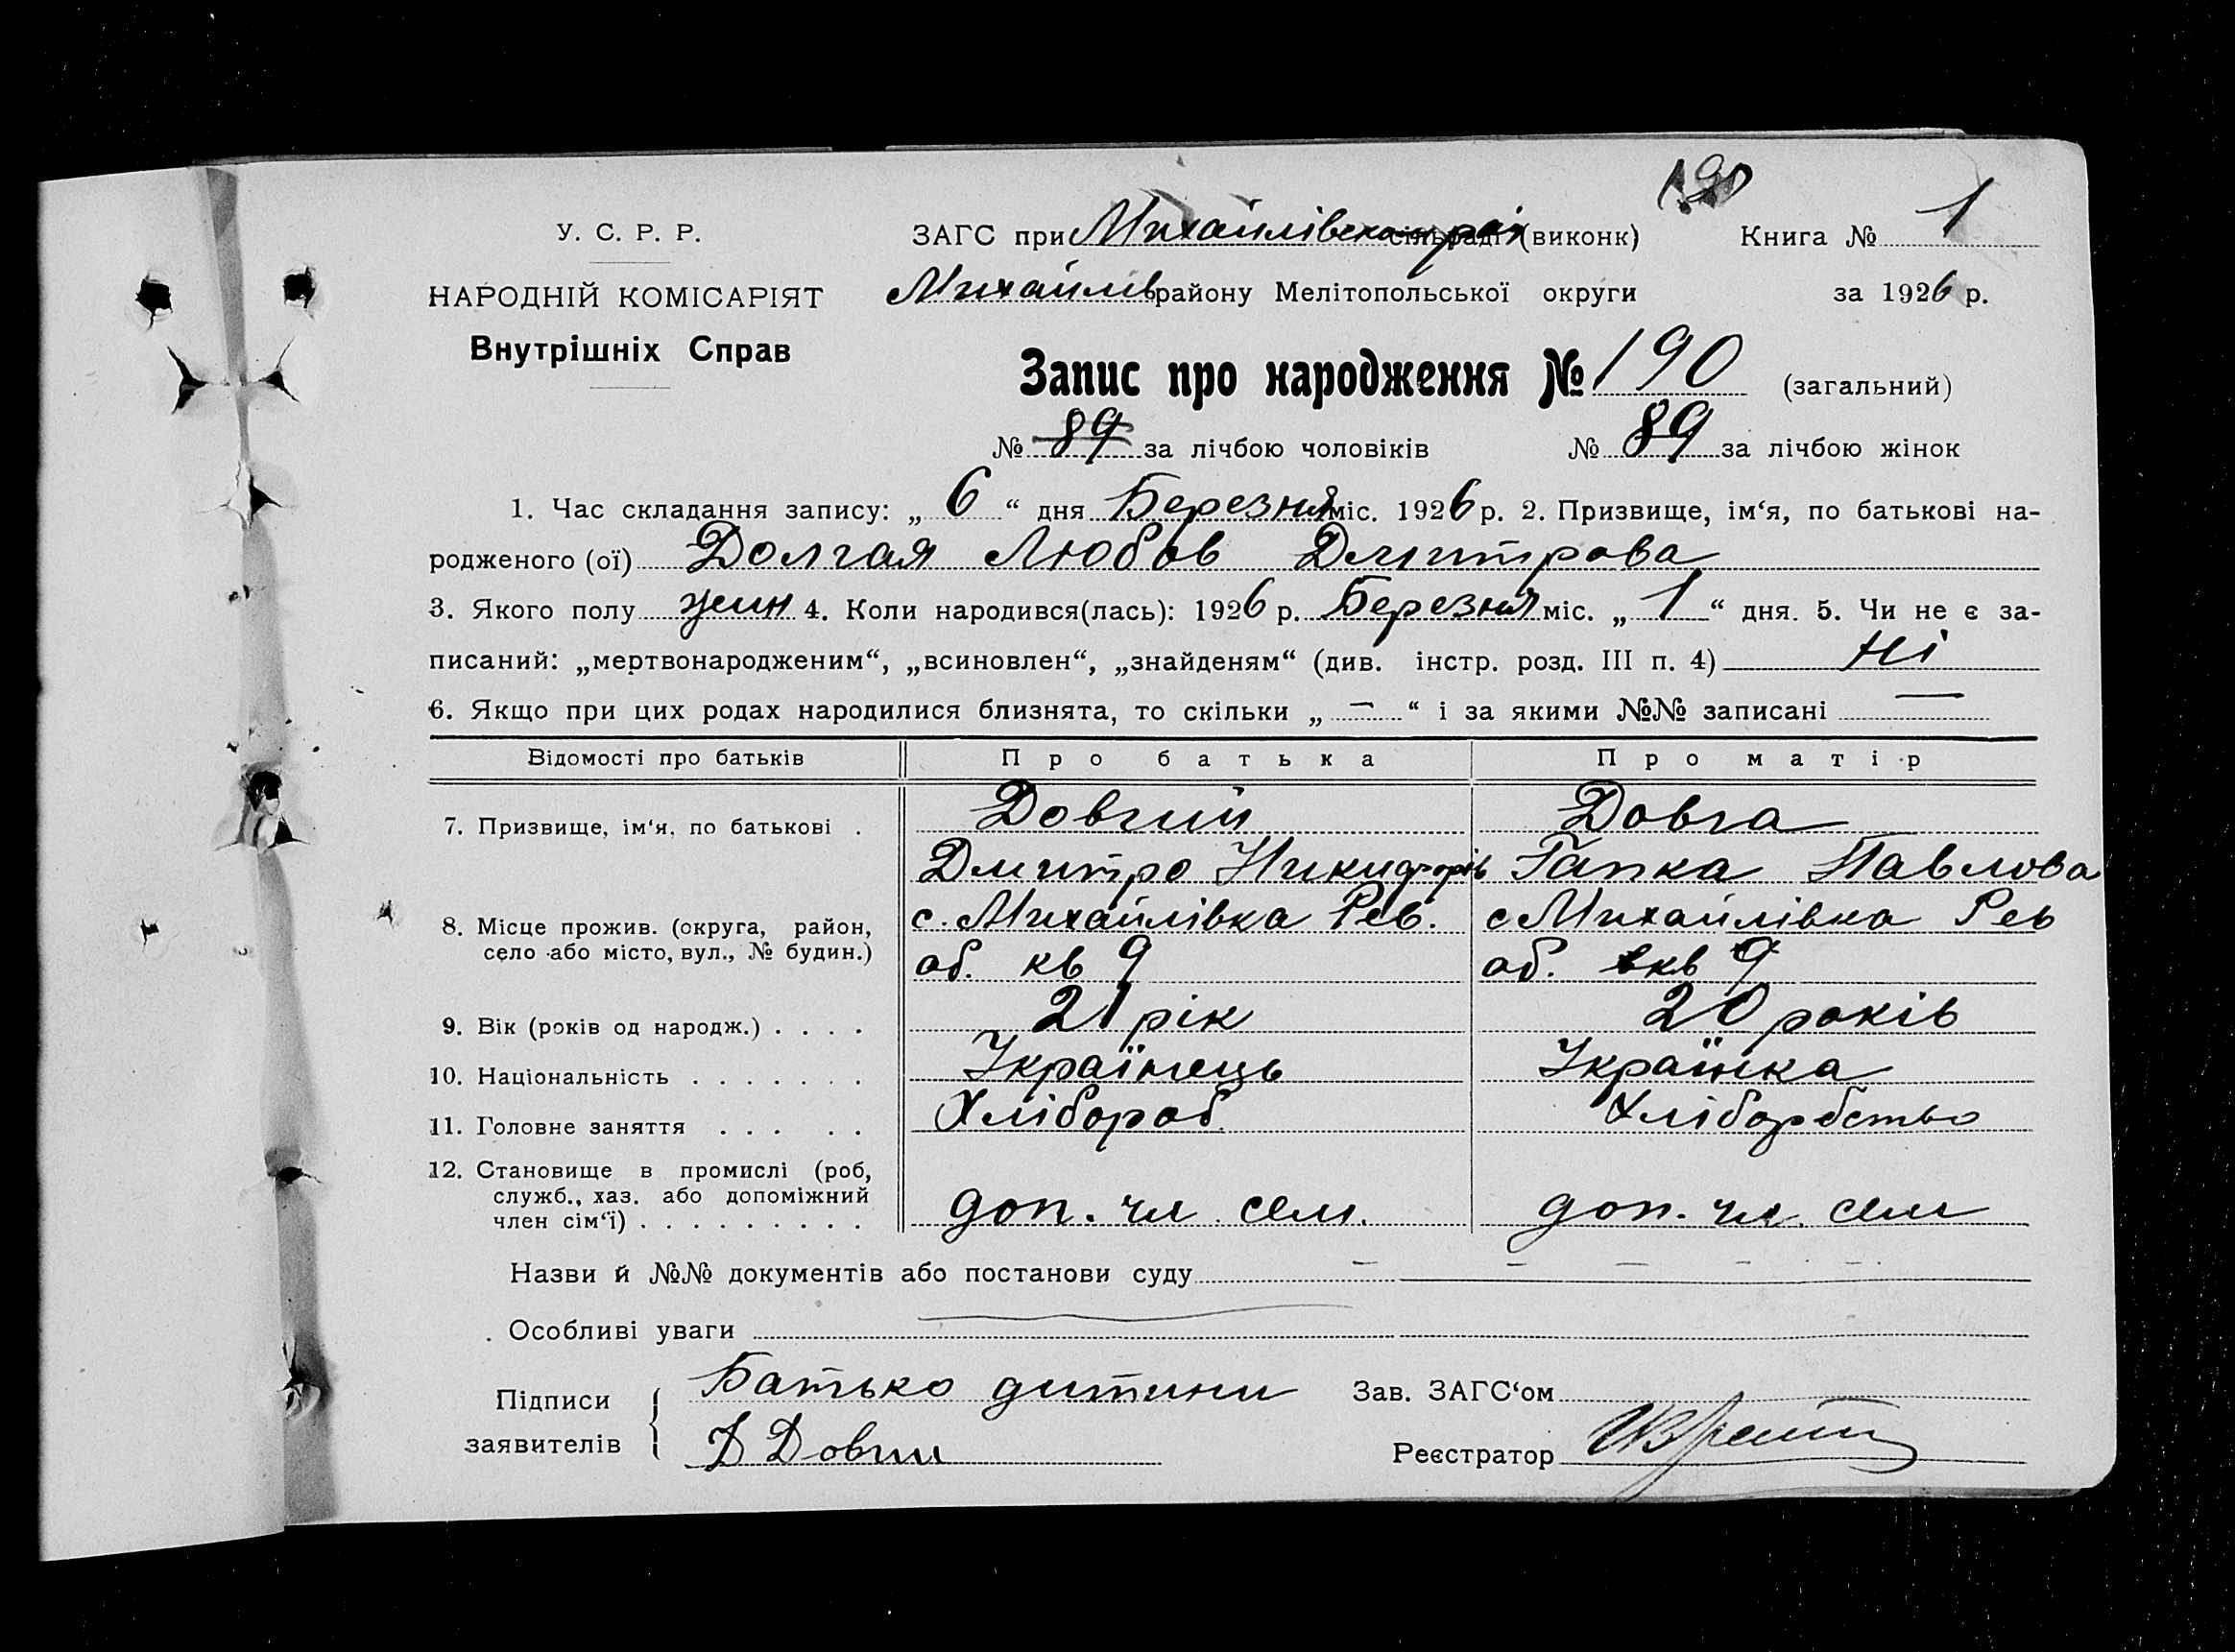 190
У. С. Р. Р. ЗАГС при Михайлівском рай (виконк) Книга № 1
НАРОДНІЙ КОМІСАРІЯТ Михайлів району Мелітопольської округи за 1926 р.
Внутрішніх Справ
Запис про народження № 190 (загальний)
№ 89 за лічбою чоловіків № 89 за лічбою жінок
1. Час складання запису: „ 6 “ дня Березня міс. 1926 р. 2. Призвище, ім‘я, по батькові на-
родженого (ої) Долгая Любов Дмитрова
3. Якого полу жин 4. Коли народився(лась): 1926 р. Березня міс. „ 1 “ дня. 5. Чи не є за-
писаний: „мертвонародженим“, „всиновлен“, „знайденям“ (див. інстр. розд. III п. 4) Ні
6. Якщо при цих родах народилися близнята, то скільки „ — “ і за якими №№ записані —
Відомості про батьків Про батька Про матір
Довгий Довга
7. Призвище, ім‘я, по батькові .
Дмитро Никифорів Гапка Павлова
8. Місце прожив. (округа, район, с. Михайлівка Рев. с Михайлівка Рев
село або місто, вул., № будин.) об. кв 9 об. кв 9
9. Вік (років од народж.) . . . . 21 рік 20 років
10. Національність . . . . . . . Українець Українка
11. Головне заняття . . . . . Хлібороб Хліборбство
12. Становище в промислі (роб,
служб., хаз. або допоміжний
член сім‘ї) . . . . . . . . . доп. чл. сем. доп. чл. сем
Назви й №№ документів або постанови суду — — — — —
Особливі уваги
Підписи Батько дитини Зав. ЗАГС‘ом
заявителів Д Довги Реєстратор